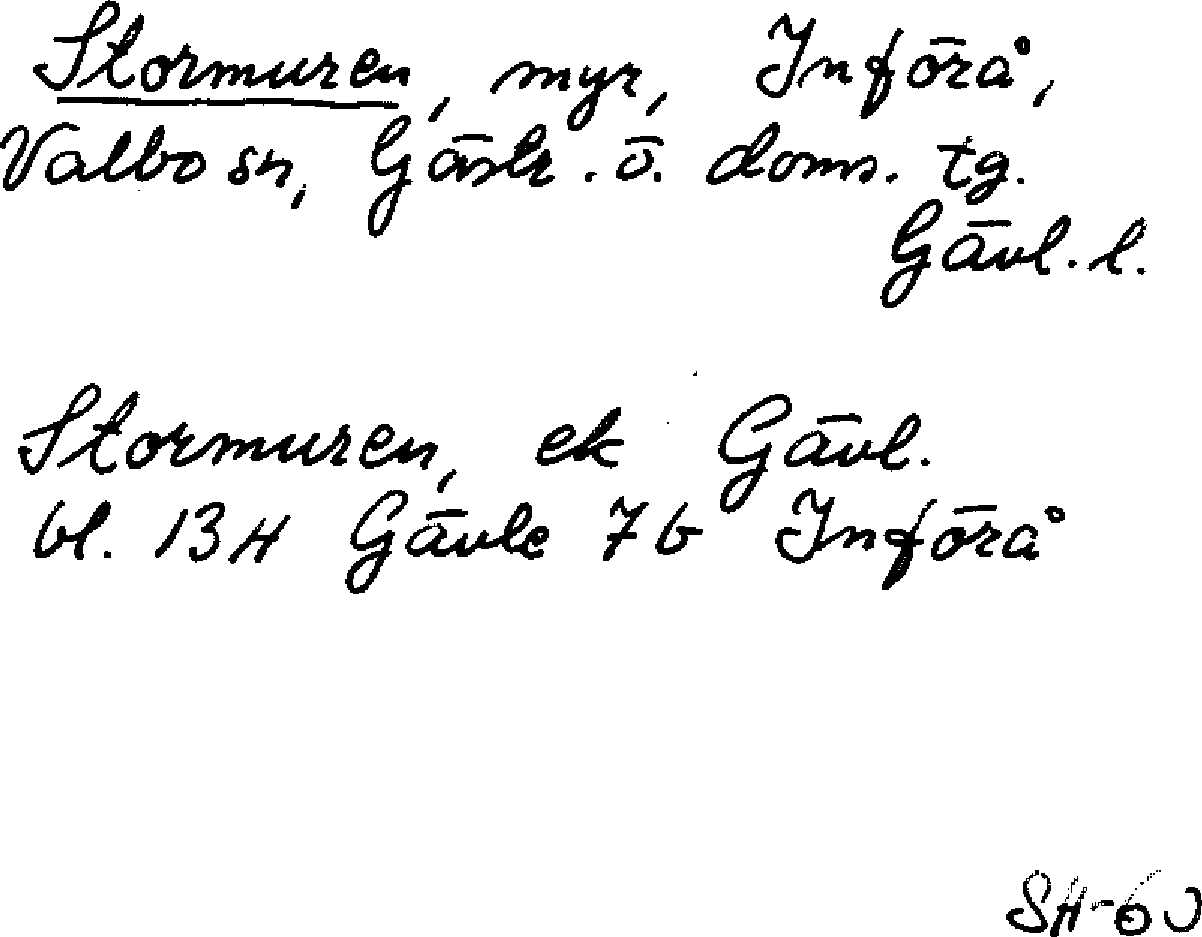 Stormuren, myr, Införå,
Valbo sn, Gästr. ö. doms. tg.
Gävl. l.
Stormuren, ek Gävl.
bl. 13H Gävle 7b Införå
SH-60